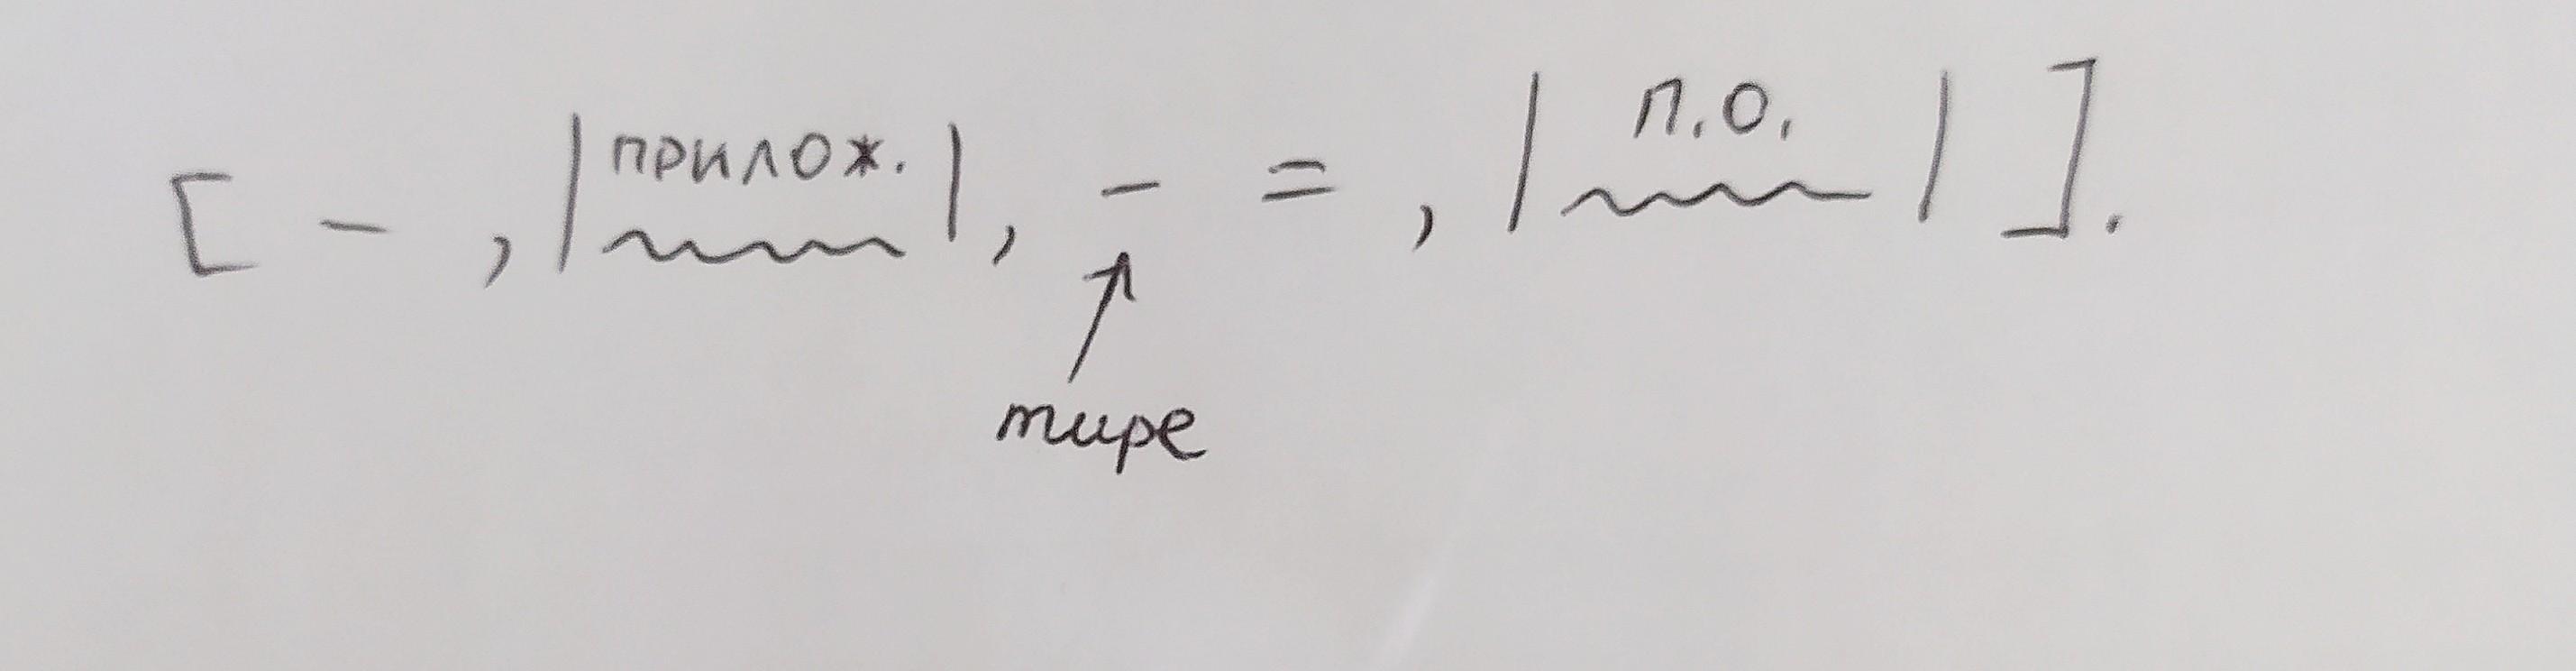 [ – , |прилож.|, – = , | п.о. | ].
тире